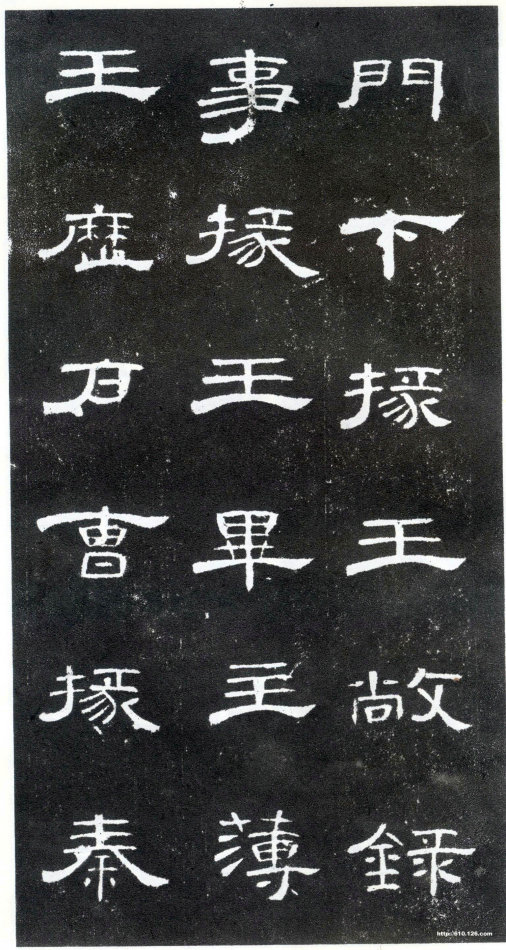 門下掾王敞錄
事掾王畢主薄
王歷戶曹掾秦
http://610.126.com